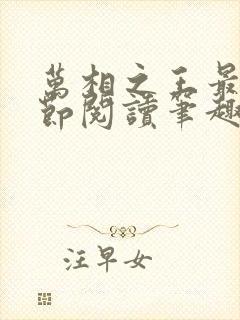 萬相之王最
節閱讀筆趣
汪早女